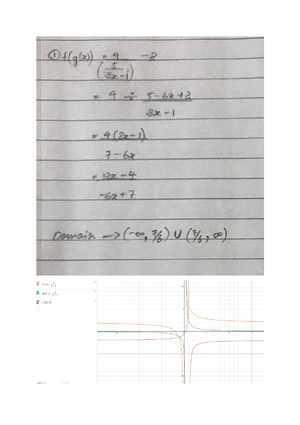 ① f(g(x)) = 4 -2
(5
3x-1)
= 4 ÷ 5-6x+2
3x-1
= 4(3x-1)
7-6x
= 12x-4
-6x+7
Domain => (-∞, 7/6) ∪ (7/6, ∞)